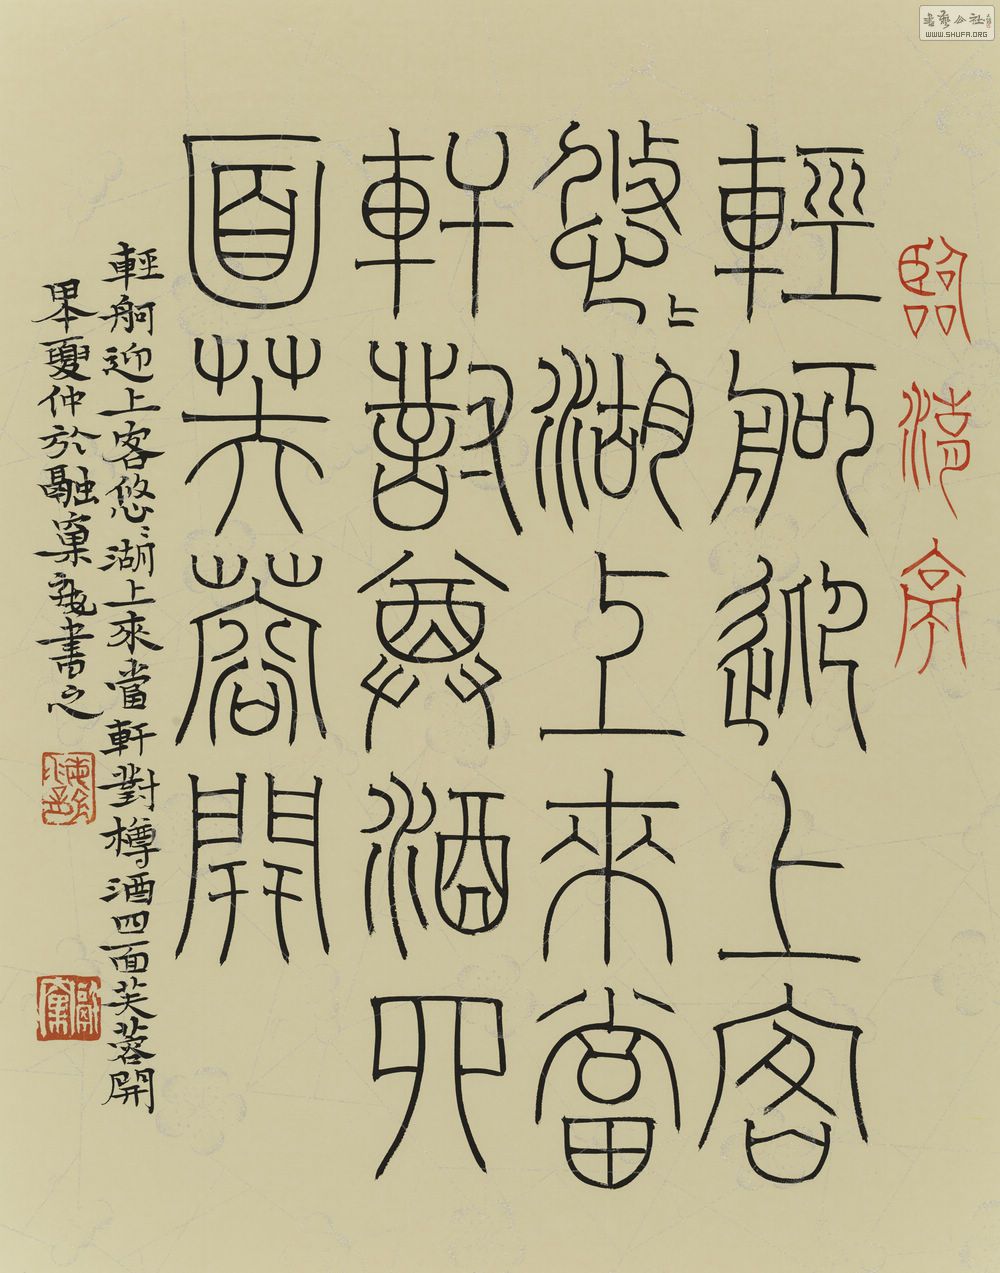 臨湖亭
輕舸迎上客
悠〻湖上來當
軒對尊酒四
面芙蓉開
輕舸迎上客悠〻湖上來當軒對樽酒四面芙蓉開
夏仲於融巢 書之
書藝公社
WWW.SHUFA.ORG